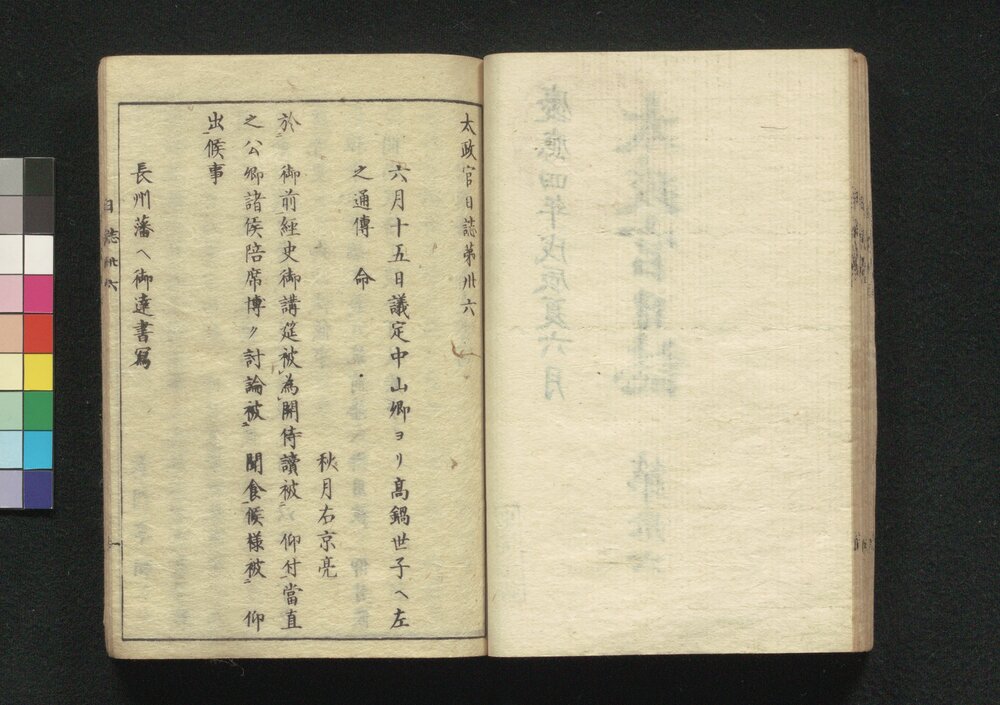 太政官日誌第卅六
六月十五日議定中山卿ヨリ高鍋世子ヘ左
之通傳　命
秋月右京亮
於　御前經史御講筵被為開侍讀被　仰付當直
之公卿諸侯陪席博ク討論被　聞食候様被　仰
出候事
長州藩ヘ御達書寫
日誌卅六
一